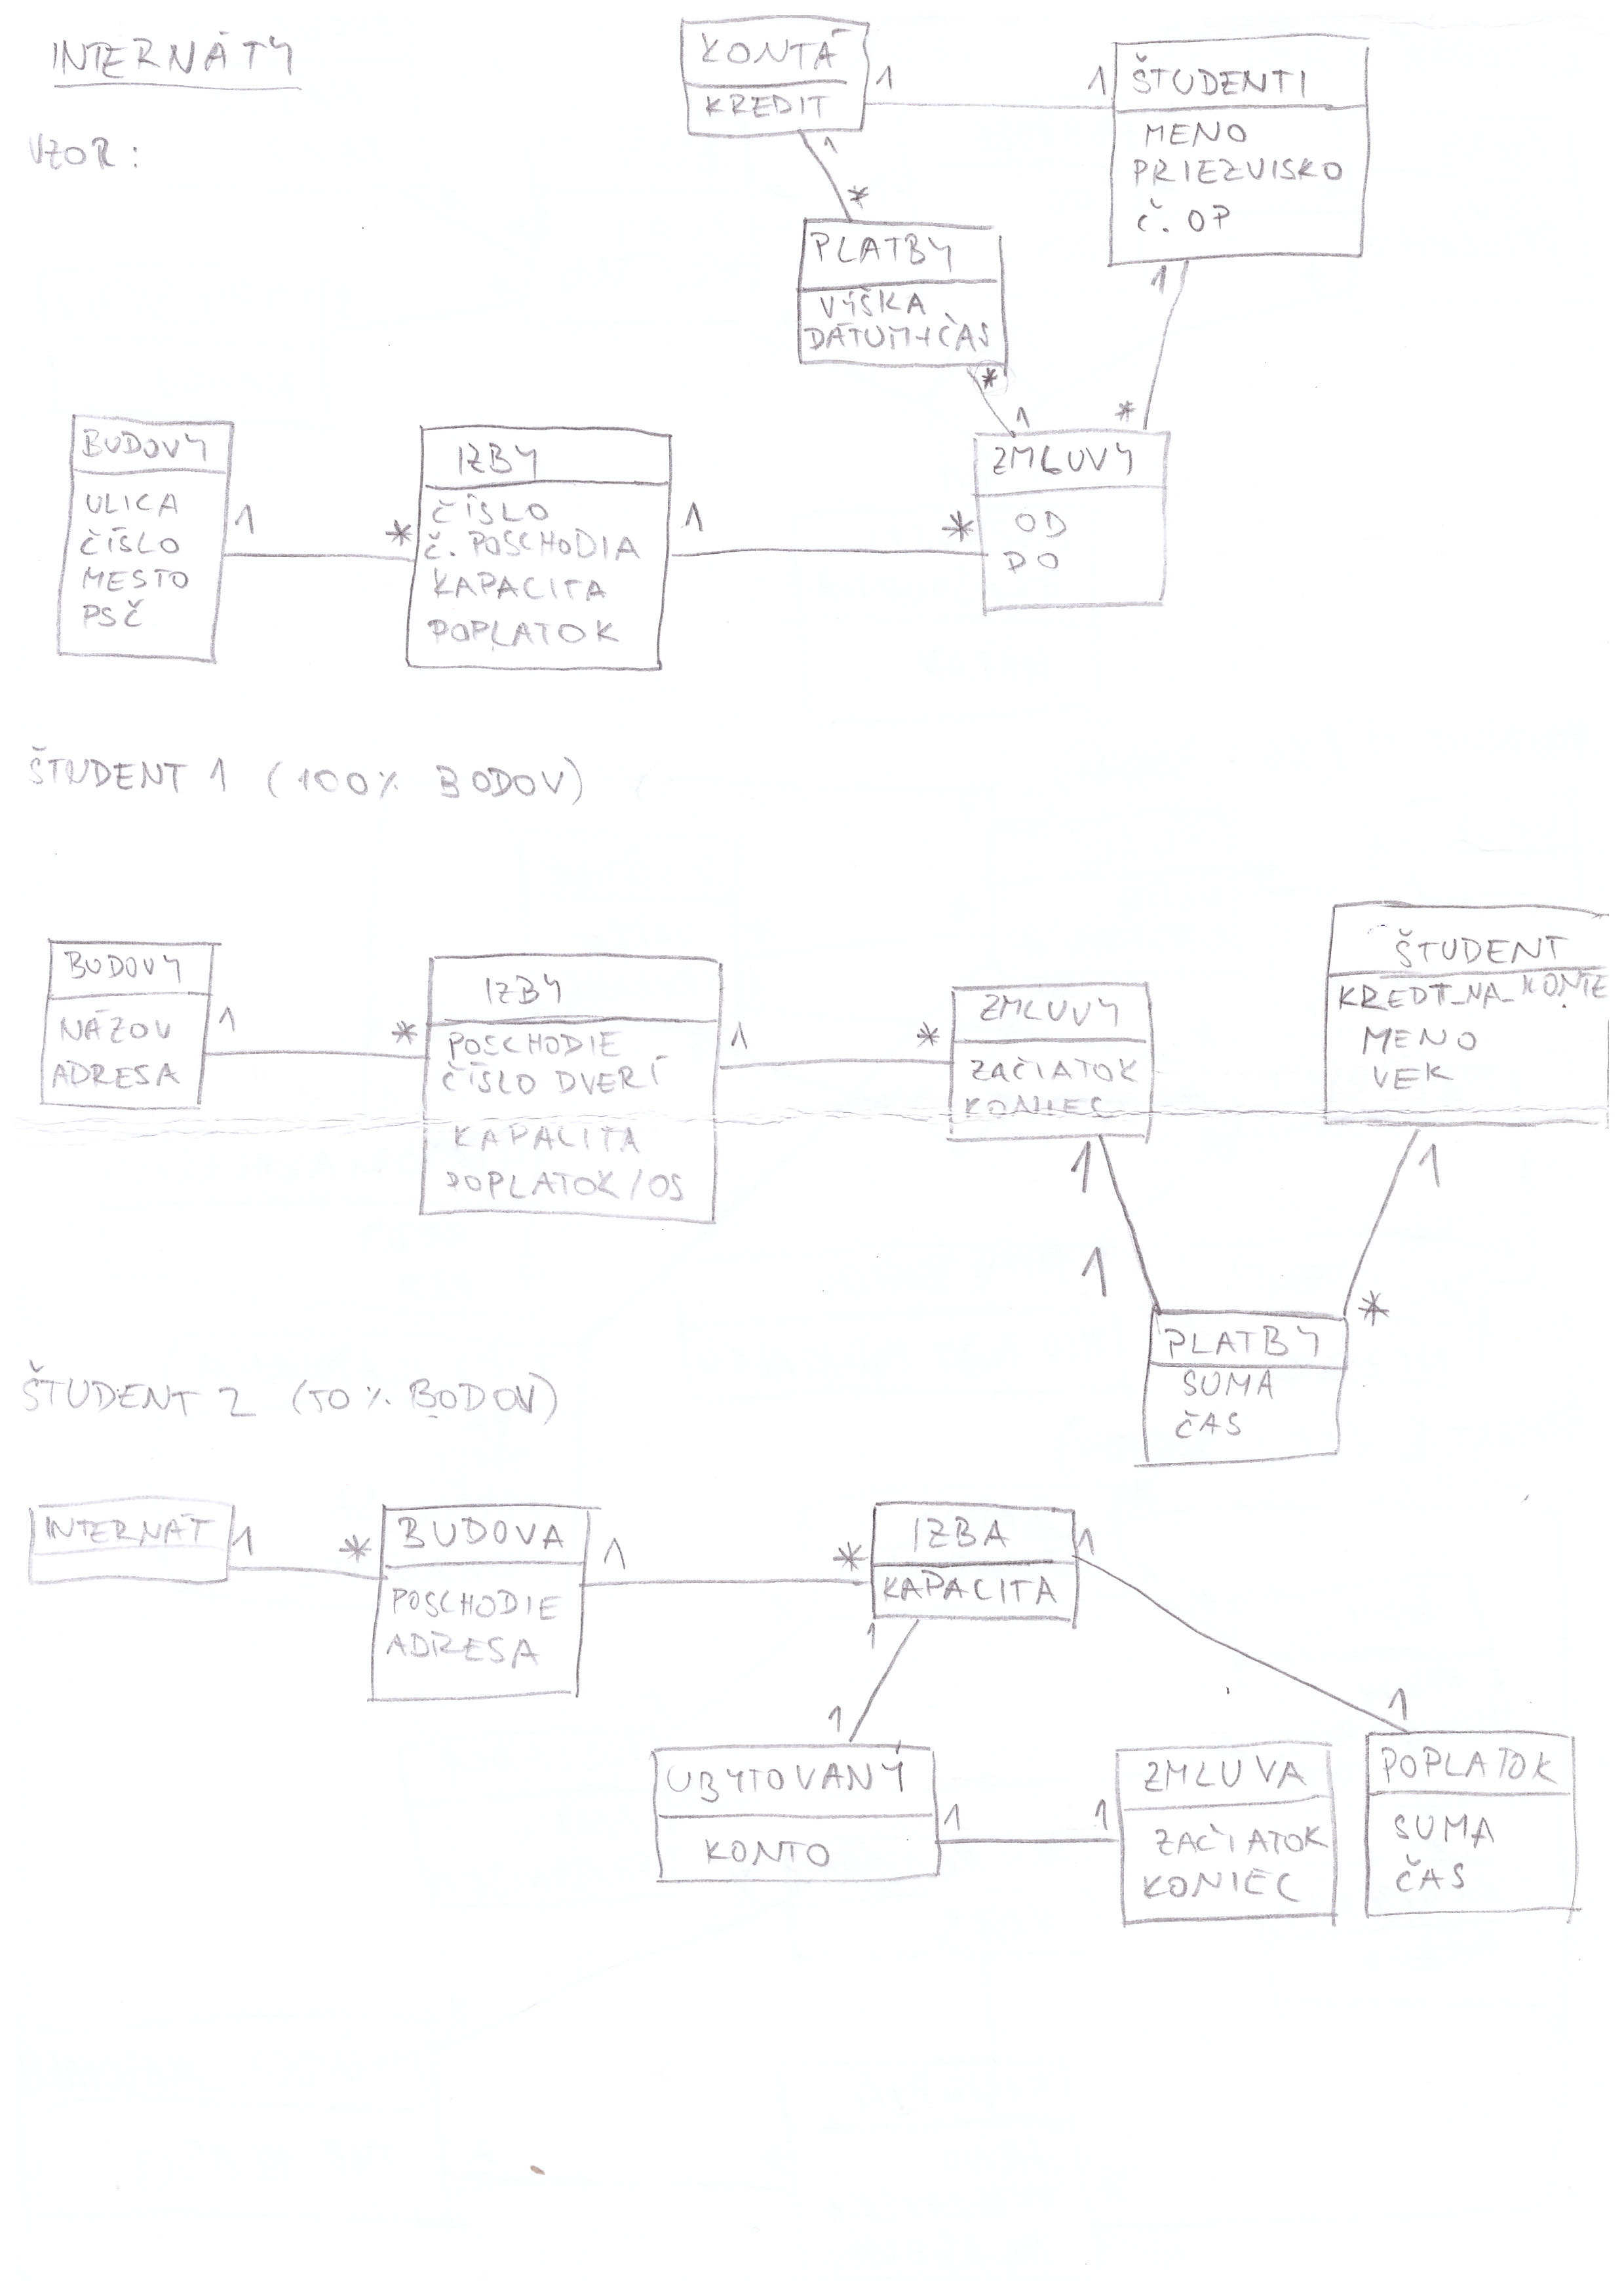 INTERNÁTY
VZOR:
KONTÁ
KREDIT
1
1
ŠTUDENTI
MENO
PRIEZVISKO
Č. OP
1
*
PLATBY
VÝŠKA
DÁTUM+ČAS
*
1
1
*
BUDOVY
ULICA
ČÍSLO
MESTO
PSČ
1
*
IZBY
ČÍSLO
Č. POSCHODIA
KAPACITA
POPLATOK
1
*
ZMLUVY
OD
DO
ŠTUDENT 1 (100% BODOV)
BUDOVY
NÁZOV
ADRESA
1
*
IZBY
POSCHODIE
ČÍSLO DVERÍ
KAPACITA
POPLATOK/OS
1
*
ZMLUVY
ZAČIATOK
KONIEC
ŠTUDENT
KREDIT_NA_KONTE
MENO
VEK
1
1
1
*
PLATBY
SUMA
ČAS
ŠTUDENT 2 (50% BODOV)
INTERNÁT
1
*
BUDOVA
POSCHODIE
ADRESA
1
*
IZBA
KAPACITA
1
1
1
1
UBYTOVANÝ
KONTO
1
1
ZMLUVA
ZAČIATOK
KONIEC
POPLATOK
SUMA
ČAS